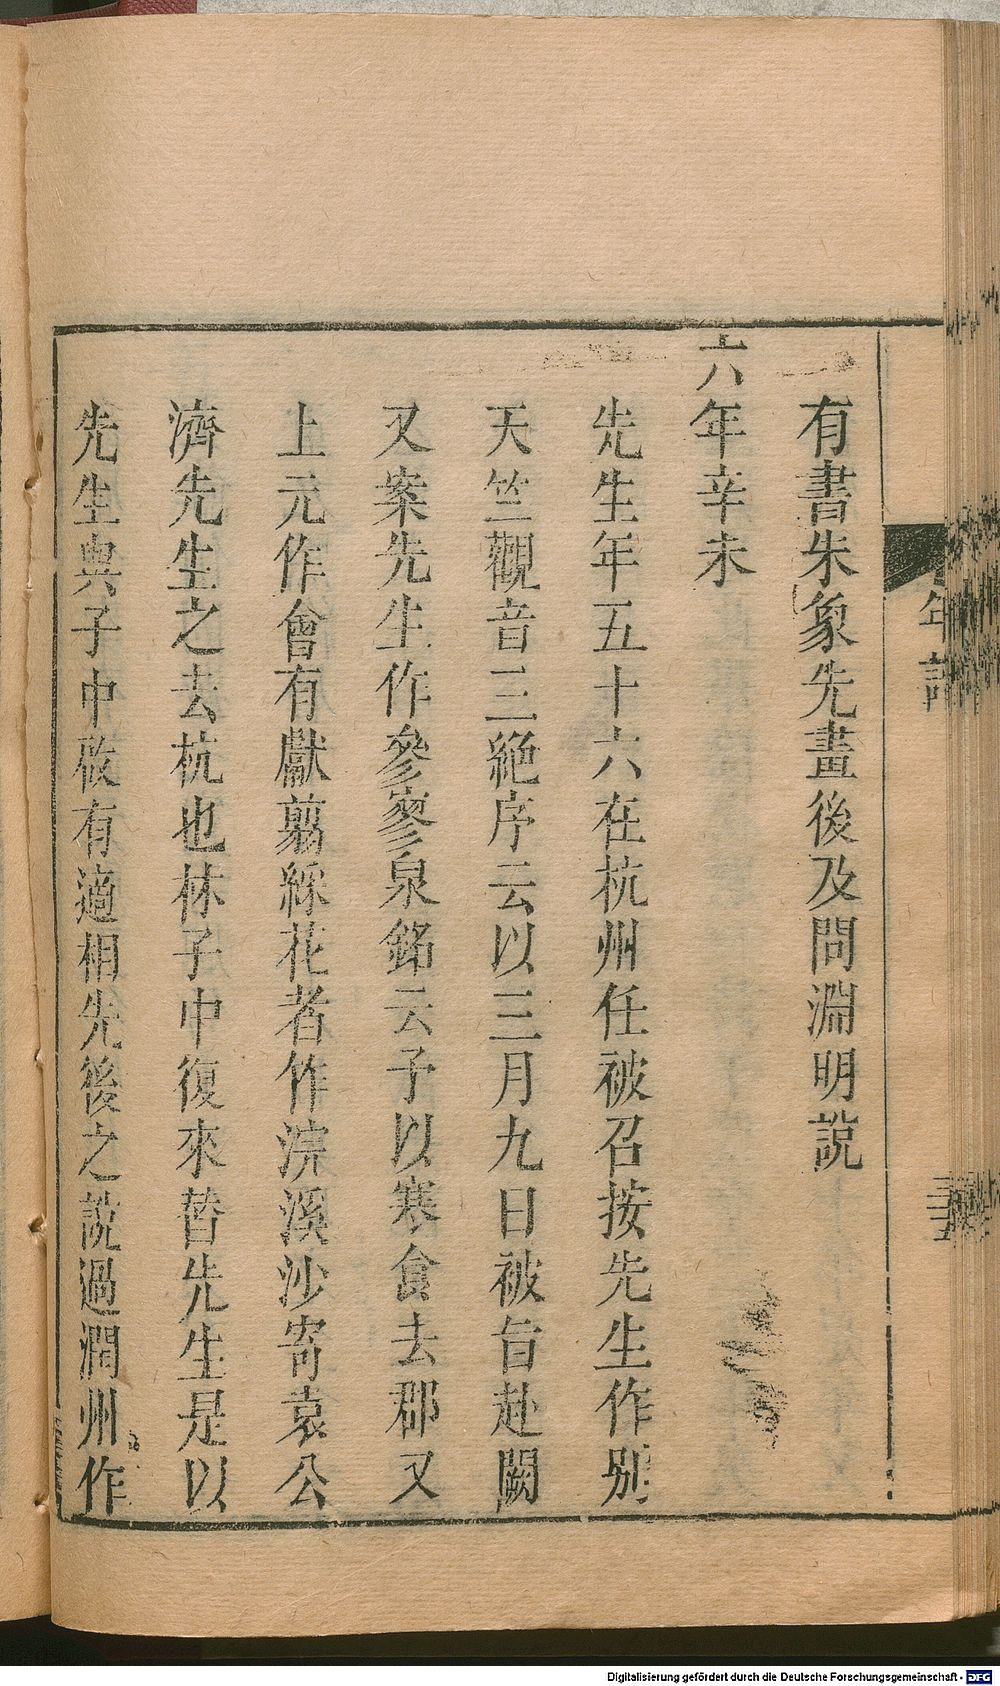 有書朱象先畫後及問淵明說
六年辛未
先生年五十六在杭州任被召按先生作別
天竺觀音三絶序云以三月九日被旨赴闕
又案先生作參寥泉銘云予以寒食去郡又
上元作會有獻翦綵花者作浣溪沙寄袁公
濟先生之去杭也林子中復來替先生是以
先生與子中啟有適相先後之說過潤州作
Digitalisierung gefördert durch die Deutsche Forschungsgemeinschaft - DFG